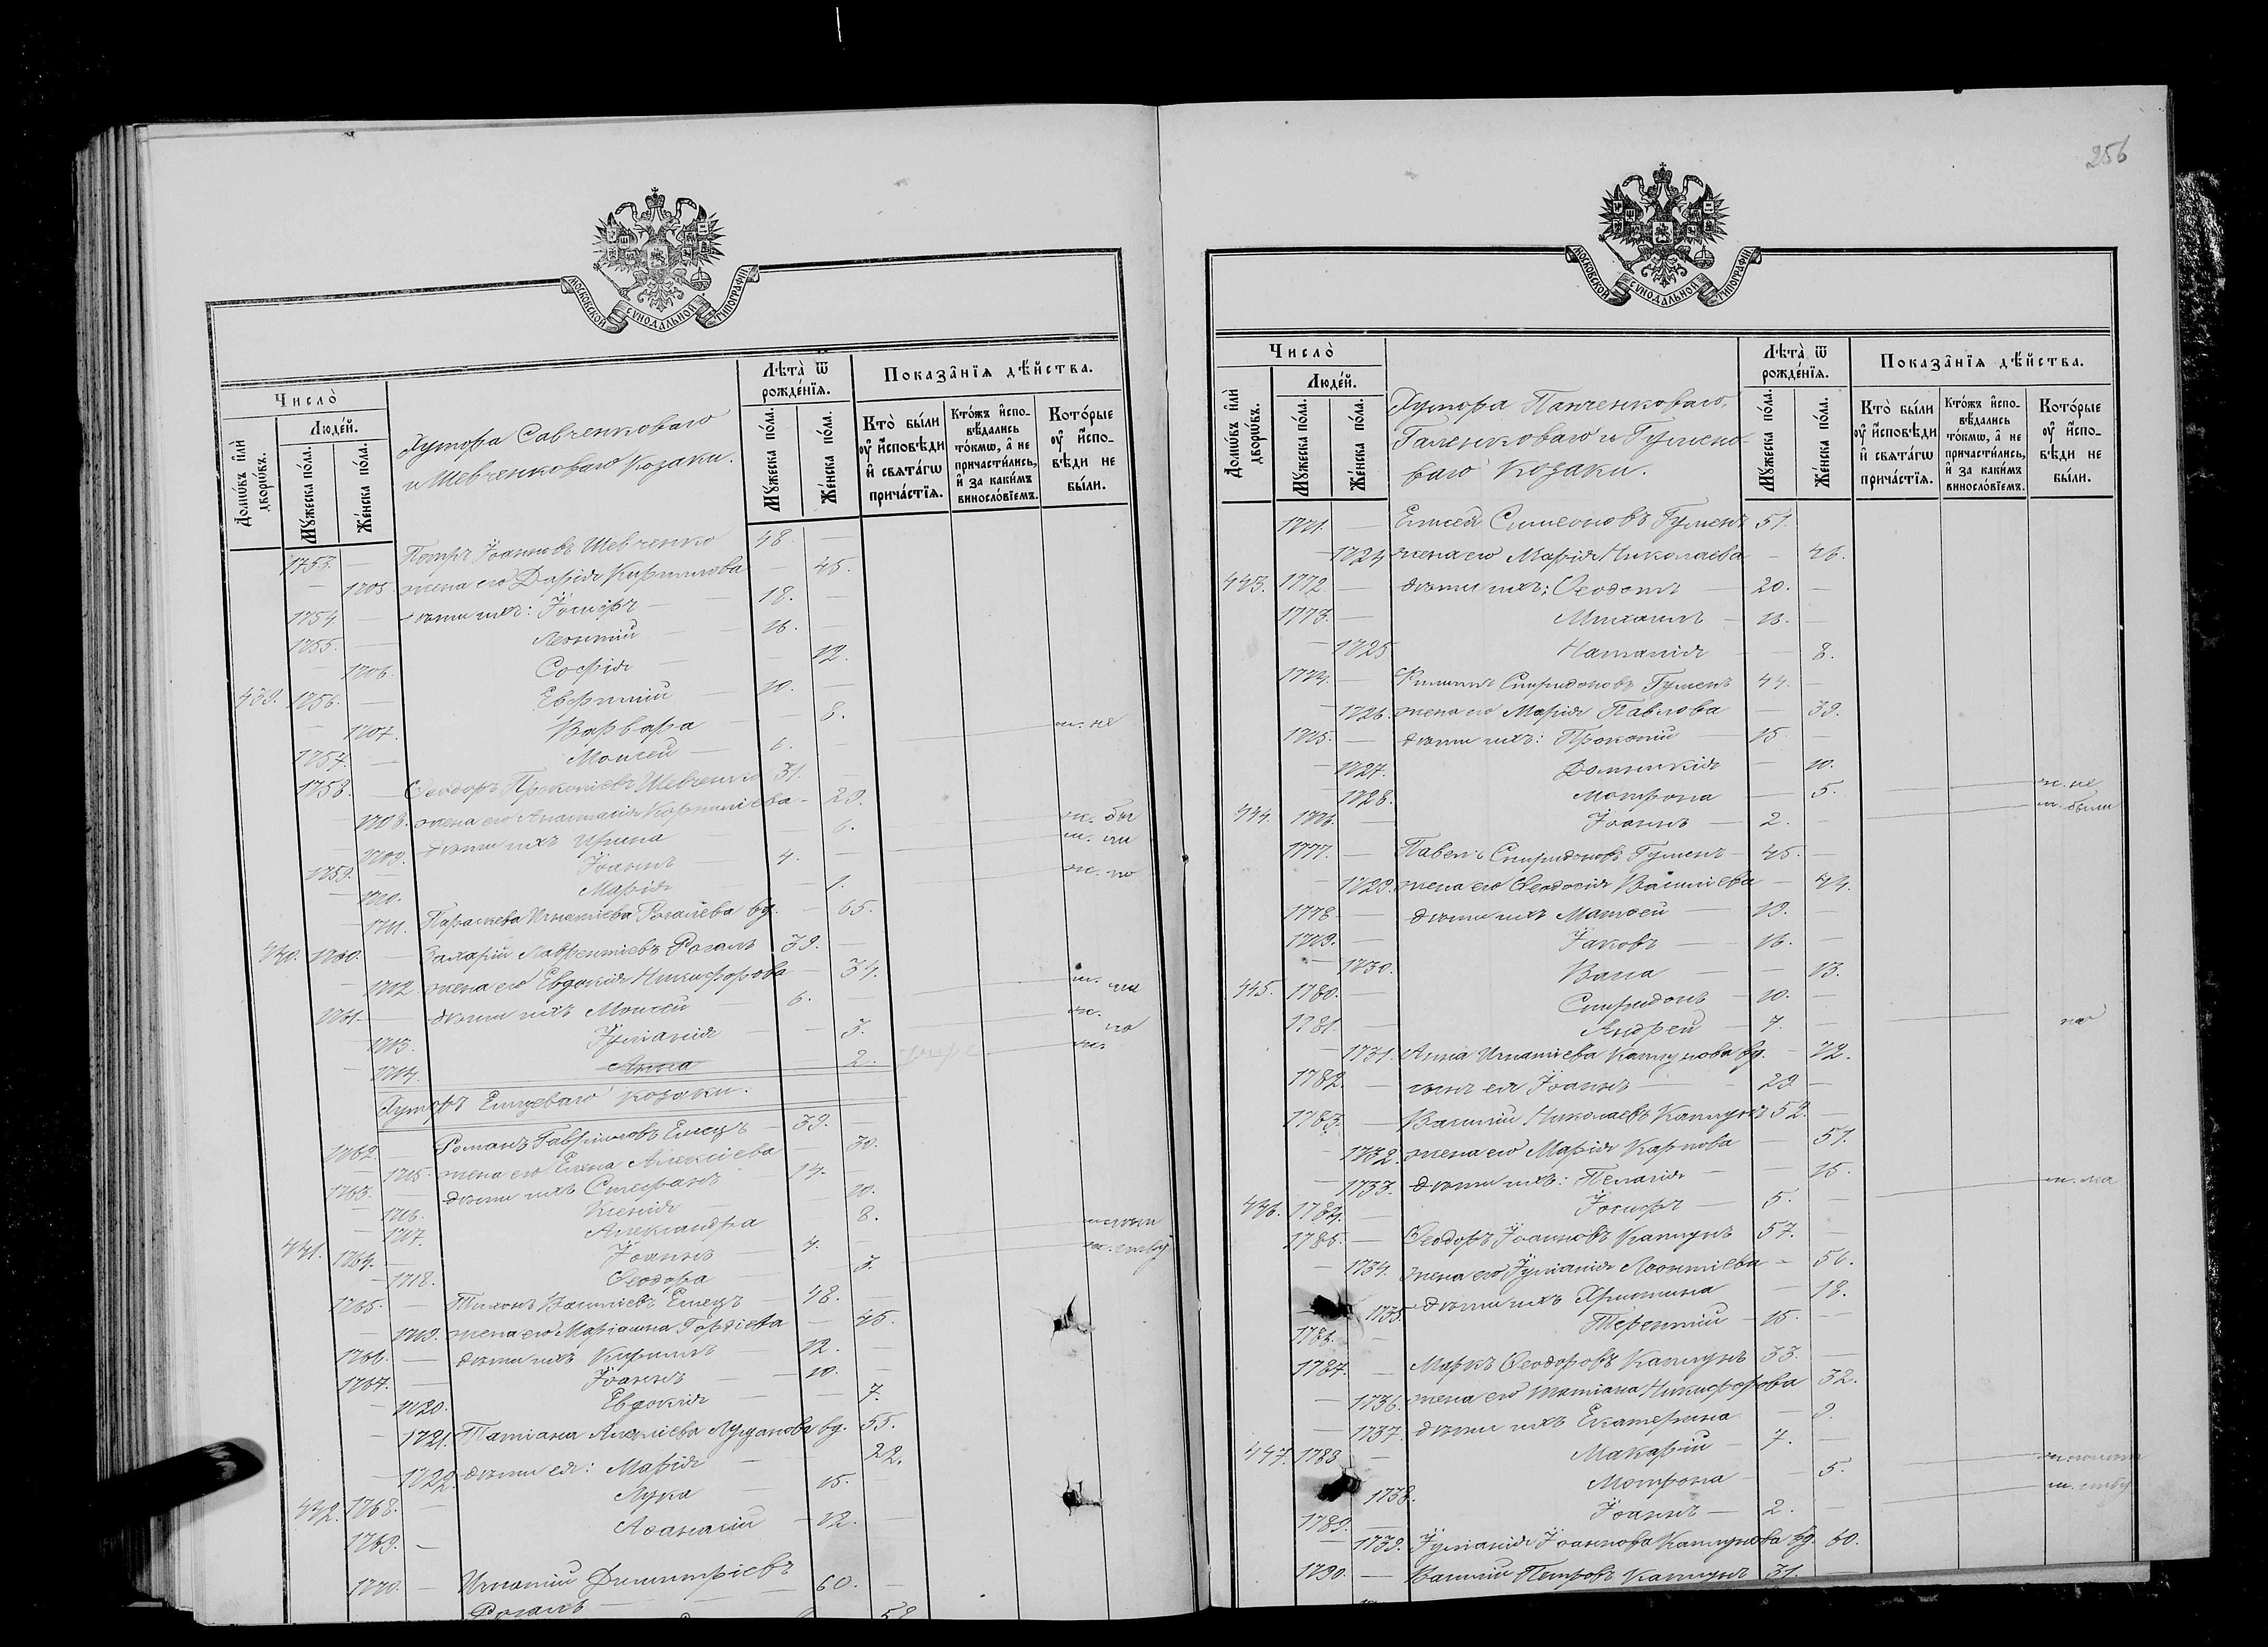 256
МОСКОВСКОЙ СѴНОДАЛЬНОЙ ТИПОГРАФІИ
Число̀
Людéй.
Домѡ́въ и҆лѝ дворѡ́въ.
Мꙋ́жеска по́ла.
Же́нска по́ла.
Хутора Савченковаго
и Шевченковаго козаки.
Лѣта̀ ѿ рожде́нїѧ.
Мꙋ́жеска по́ла.
Же́нска по́ла.
Показа̑нїѧ дѣ́йства.
Кто̀ бы́ли ᲂу҆ и҆сповѣди и҆ свѧта́гѡ прича́стїѧ.
Кто́жъ и҆спо-вѣ́дались то́кмѡ, а҆ не причасти́лись, и҆ за каки́мъ винослόвїемъ.
Кото́рые ᲂу҆ и҆спо-вѣди не бы́ли.
1753. — Петръ Іоанновъ Шевченко 48 —
— 1705. жена его Дарія Кириллова — 45.
1754 — дѣти ихъ: Іосифъ — 18. —
1755. — Леонтій — 16. —
— 1706. Софія — 12.
439. 1756. — Евфимій 10. —
— 1707. Варвара — 8.
1757. — Моисей — 6. — м. не
1758. — Ѳеодоръ Прокопіевъ Шевченко 31. —
— 1708. жена его Анастасія Корниліева — 29.
— 1709. дѣти ихъ Ирина — 6. ж. бы
1759. — Іоаннъ — 4. — м. ли
— 1710. Марія — 1. ж. по
— 1711. Параскева Игнатіева Рогалева вд. — 65.
440. 1760. — Захарій Лаврентіевъ Рогаль 39. —
— 1712. жена его Евдокія Никифорова — 34.
1761. — дѣти ихъ Моисей 6. — м.
— 1713. Іуліанія — 3. ж. по
— 1714. Анна 2. ж.
Хуторъ Емцеваго козаки.
1762. — Романъ Гавриловъ Емецъ — 39. —
— 1715. жена его Елена Алексіева — 30.
1763. — дѣти ихъ Стефанъ — 14. —
— 1716. Ксенія — 10.
— 1717. Александра 8.
441. 1764. — Іоаннъ 4. —
— 1718. Ѳеодора 3.
1765. — Тихонъ Василіевъ Емецъ — 48. —
— 1719. жена его Маріанна Гордіева — 45.
1766. — дѣти ихъ Кириллъ 12. —
1767. — Іоаннъ — 10. —
— 1720. Евдокія — 7.
— 1721. Татіана Алексіева вд. 55.
— 1722. дѣти ея: Марія — 22.
442. 1768. — Лука — 15. —
1769. — Аѳанасій — 12. —
1770. — Игнатій Димитріевъ
Рогаль — 60. —
58
Число̀
Людéй.
Домѡ́въ и҆лѝ дворѡ́въ.
Мꙋ́жеска по́ла.
Же́нска по́ла.
Хутора Панченковаго,
Галенковаго и Гумено-
ваго козаки.
Лѣта̀ ѿ рожде́нїѧ.
Мꙋ́жеска по́ла.
Же́нска по́ла.
Показа̑нїѧ дѣ́йства.
Кто̀ бы́ли ᲂу҆ и҆сповѣди и҆ свѧта́гѡ прича́стїѧ.
Кто́жъ и҆спо-вѣ́дались то́кмѡ, а҆ не причасти́лись, и҆ за каки́мъ винослόвїемъ.
Кото́рые ᲂу҆ и҆спо-вѣди не бы́ли.
1771. — Елисей Симеоновъ Гуменъ 51.
— 1724 жена его Марія Николаева — 46.
443. 1772 — дѣти ихъ: Ѳеодотъ — 20. —
1773. — Михаилъ — 13. —
— 1725 Наталія — 8.
1774. — Спиридоновъ Гуменъ 44. —
— 1726. жена его Марія Павлова — 39.
1775. — дѣти ихъ: Прокопій 15 —
— 1727. Домникія — 10.
— 1728. Мотрона — 5. ж. не
444. 1776. — Іоаннъ — 2. — м. были
1777. — Павелъ Спиридоновъ Гуменъ — 45. —
— 1729. жена его Ѳеодосія Василіева — 44.
1778 — дѣти ихъ Матѳей — 19. —
1779. — Іаковъ — 16. —
— 1730. Васса — 13.
445. 1780. — Спиридонъ — 10. —
1781. — Андрей — 7. — по
— 1731. Анна Игнатіева Каплунова вд. — 72.
1782. — сынъ ея Іоаннъ — 29 —
1783. — Василій Николаевъ Каплунъ 52. —
— 1732. жена его Марія Карпова — 51.
— 1733. дѣти ихъ: Пелагія — 15.
446. 1784. — Іосифъ — 5. — м. ма
1785. — Ѳеодоръ Іоанновъ Каплунъ 57. —
— 1734. жена его Іуліанія Леонтіева — 56.
— 1735. дѣти ихъ Христина — 18.
1786. — Терентій — 15. —
1787. — Маркъ Ѳеодоровъ Каплунъ 33. —
— 1736. жена его Татіана Никифорова 32.
— 1737. дѣти ихъ Екатерина — 9.
447. 1788 — Макарій — 7. —
— 1738. Мотрона — 5.
1789. — Іоаннъ — 2. —
— 1739. Іуліанія Іоаннова Каплунова вд. 60.
1790. — Василій Петровъ Каплунъ 31.